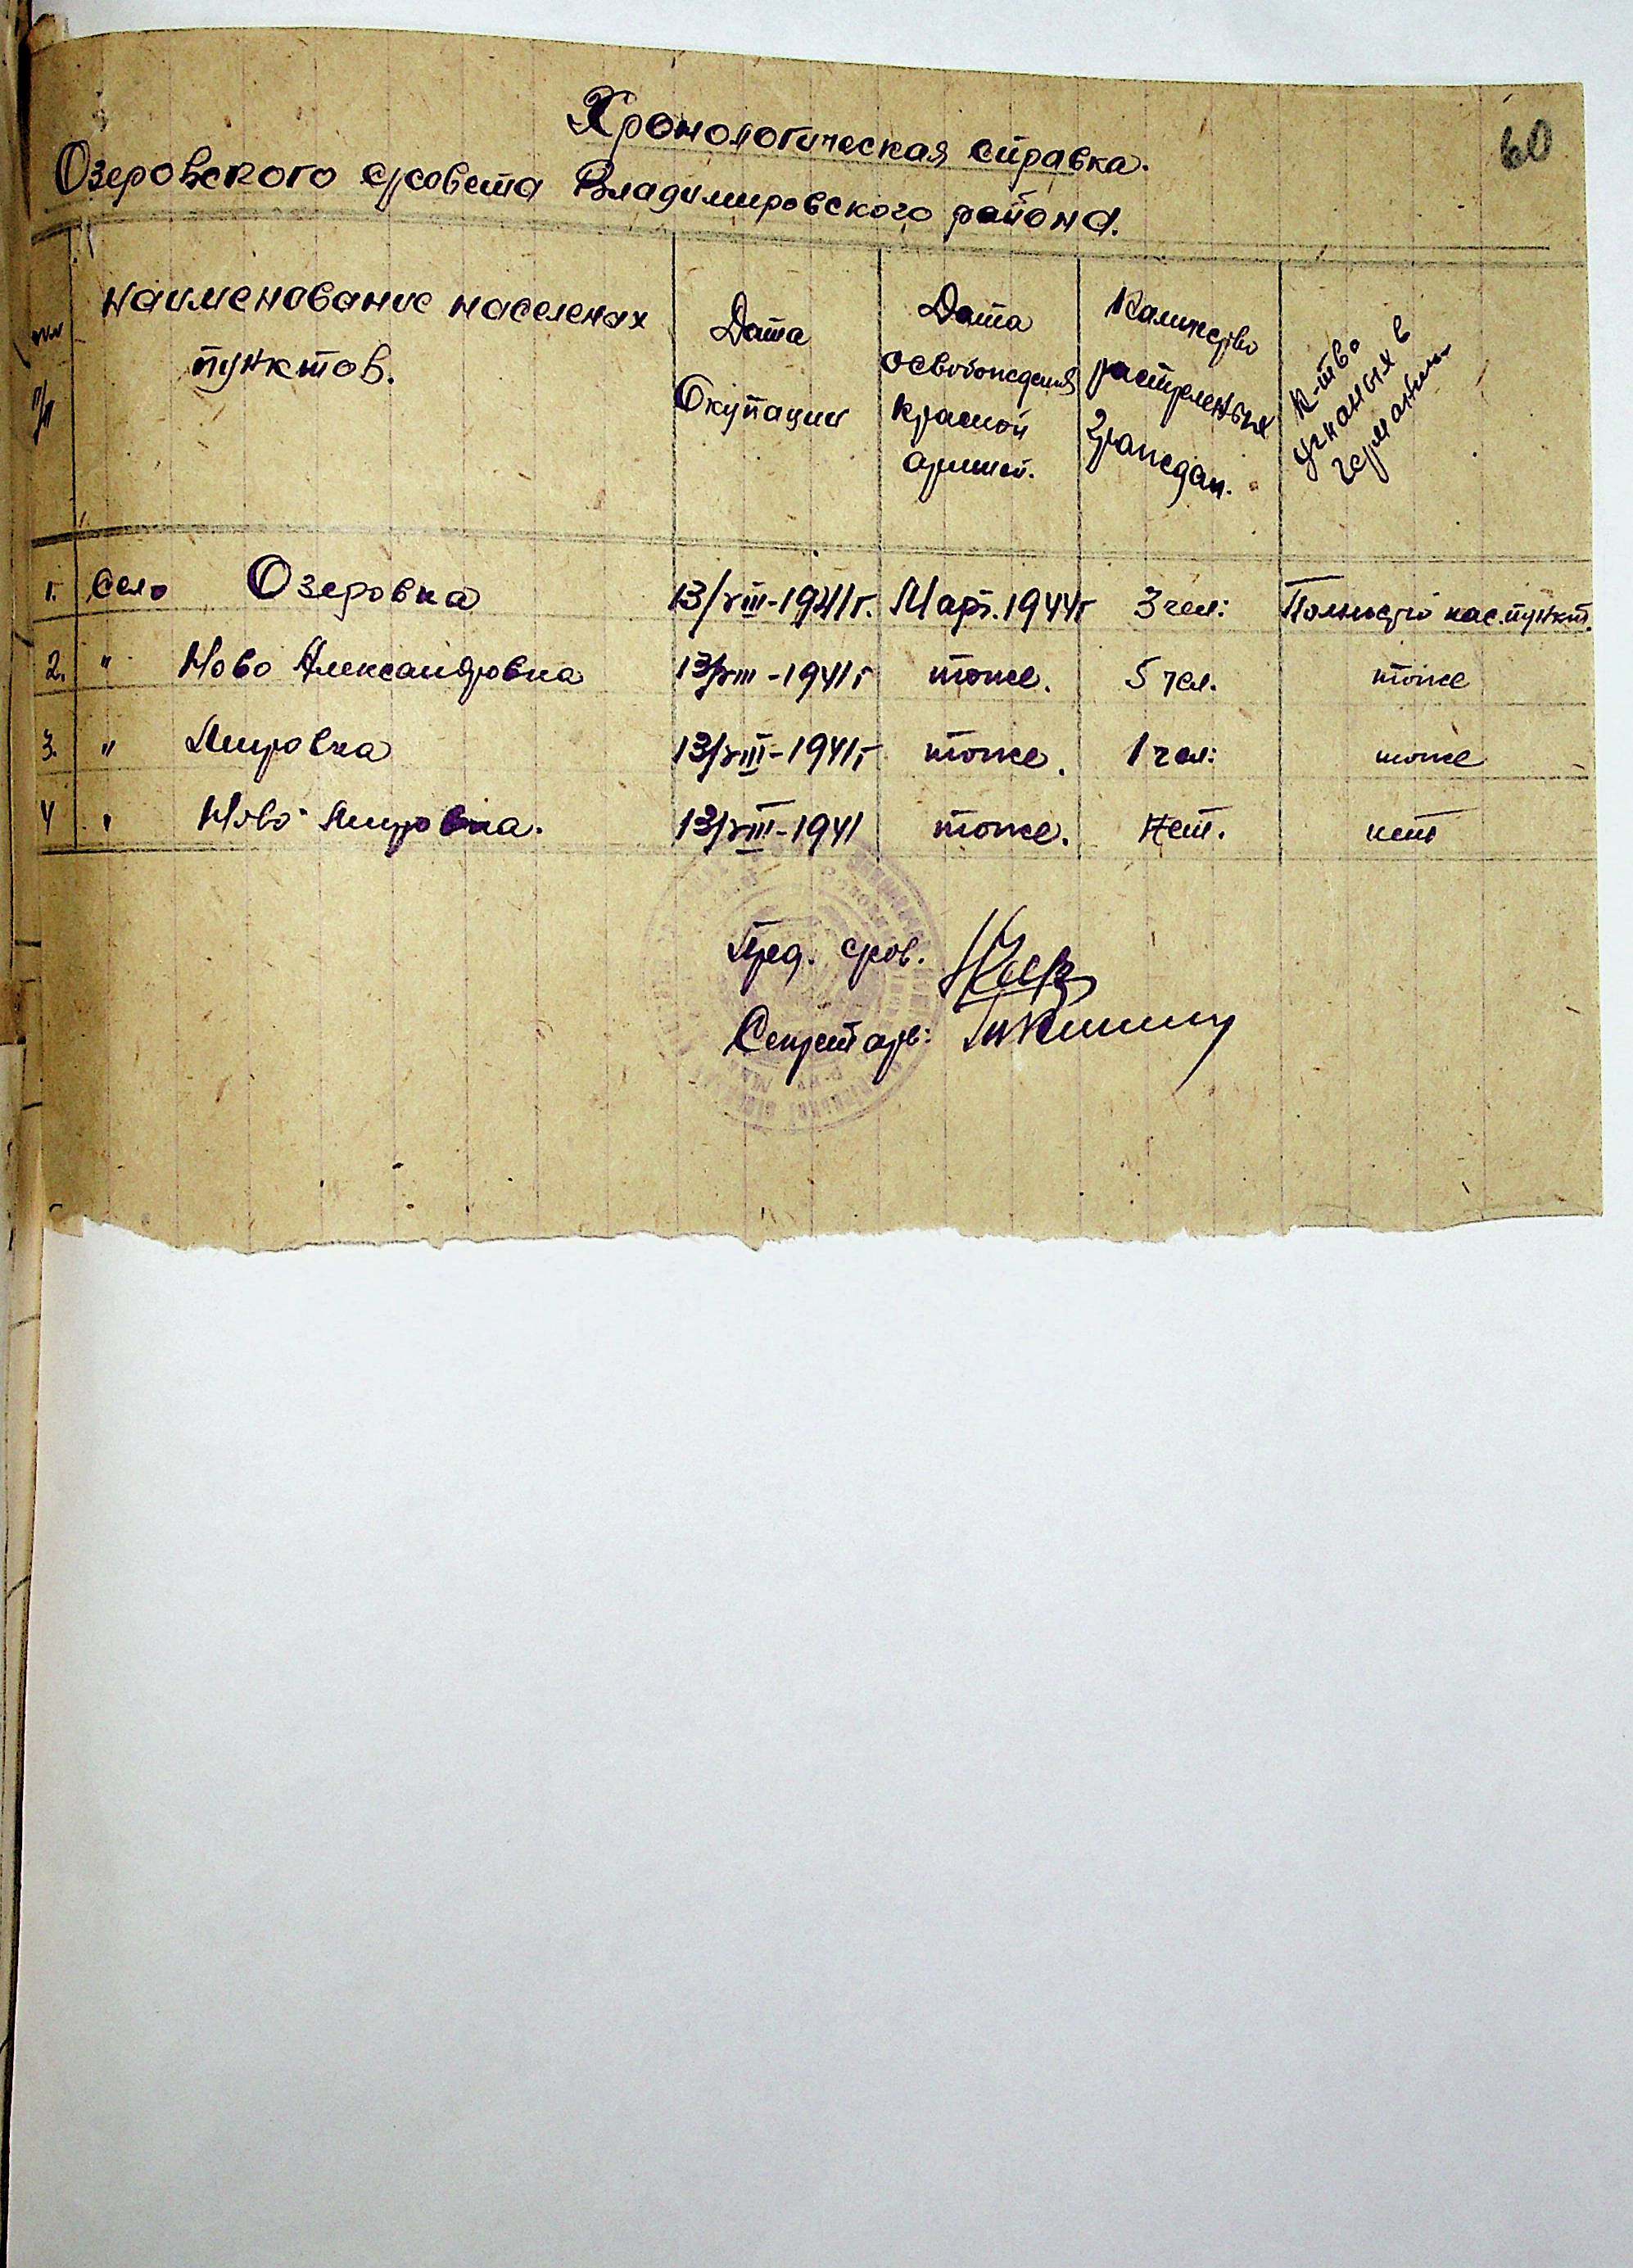 60
Хронологическая справка.
Озеровского с/совета Владимировского района.
№№ п/п
Наименование населеных пунктов.
Дата Окупации
Дата освобождения красной армией.
Количество растреленых граждан.
К-тво угнаных в германию
1. Село Озеровка 13/VIII-1941г. Март.1944г 3 чел: Полность нас.пункт.
2. " Ново Александровка 13/VIII-1941г тоже. 5 чел. тоже
3. " Мировка 13/VIII-1941г тоже. 1 чел: тоже
4 " Ново-Мировка. 13/VIII-1941 тоже. Нет. нет
Пред. с/сов.
Секретарь: